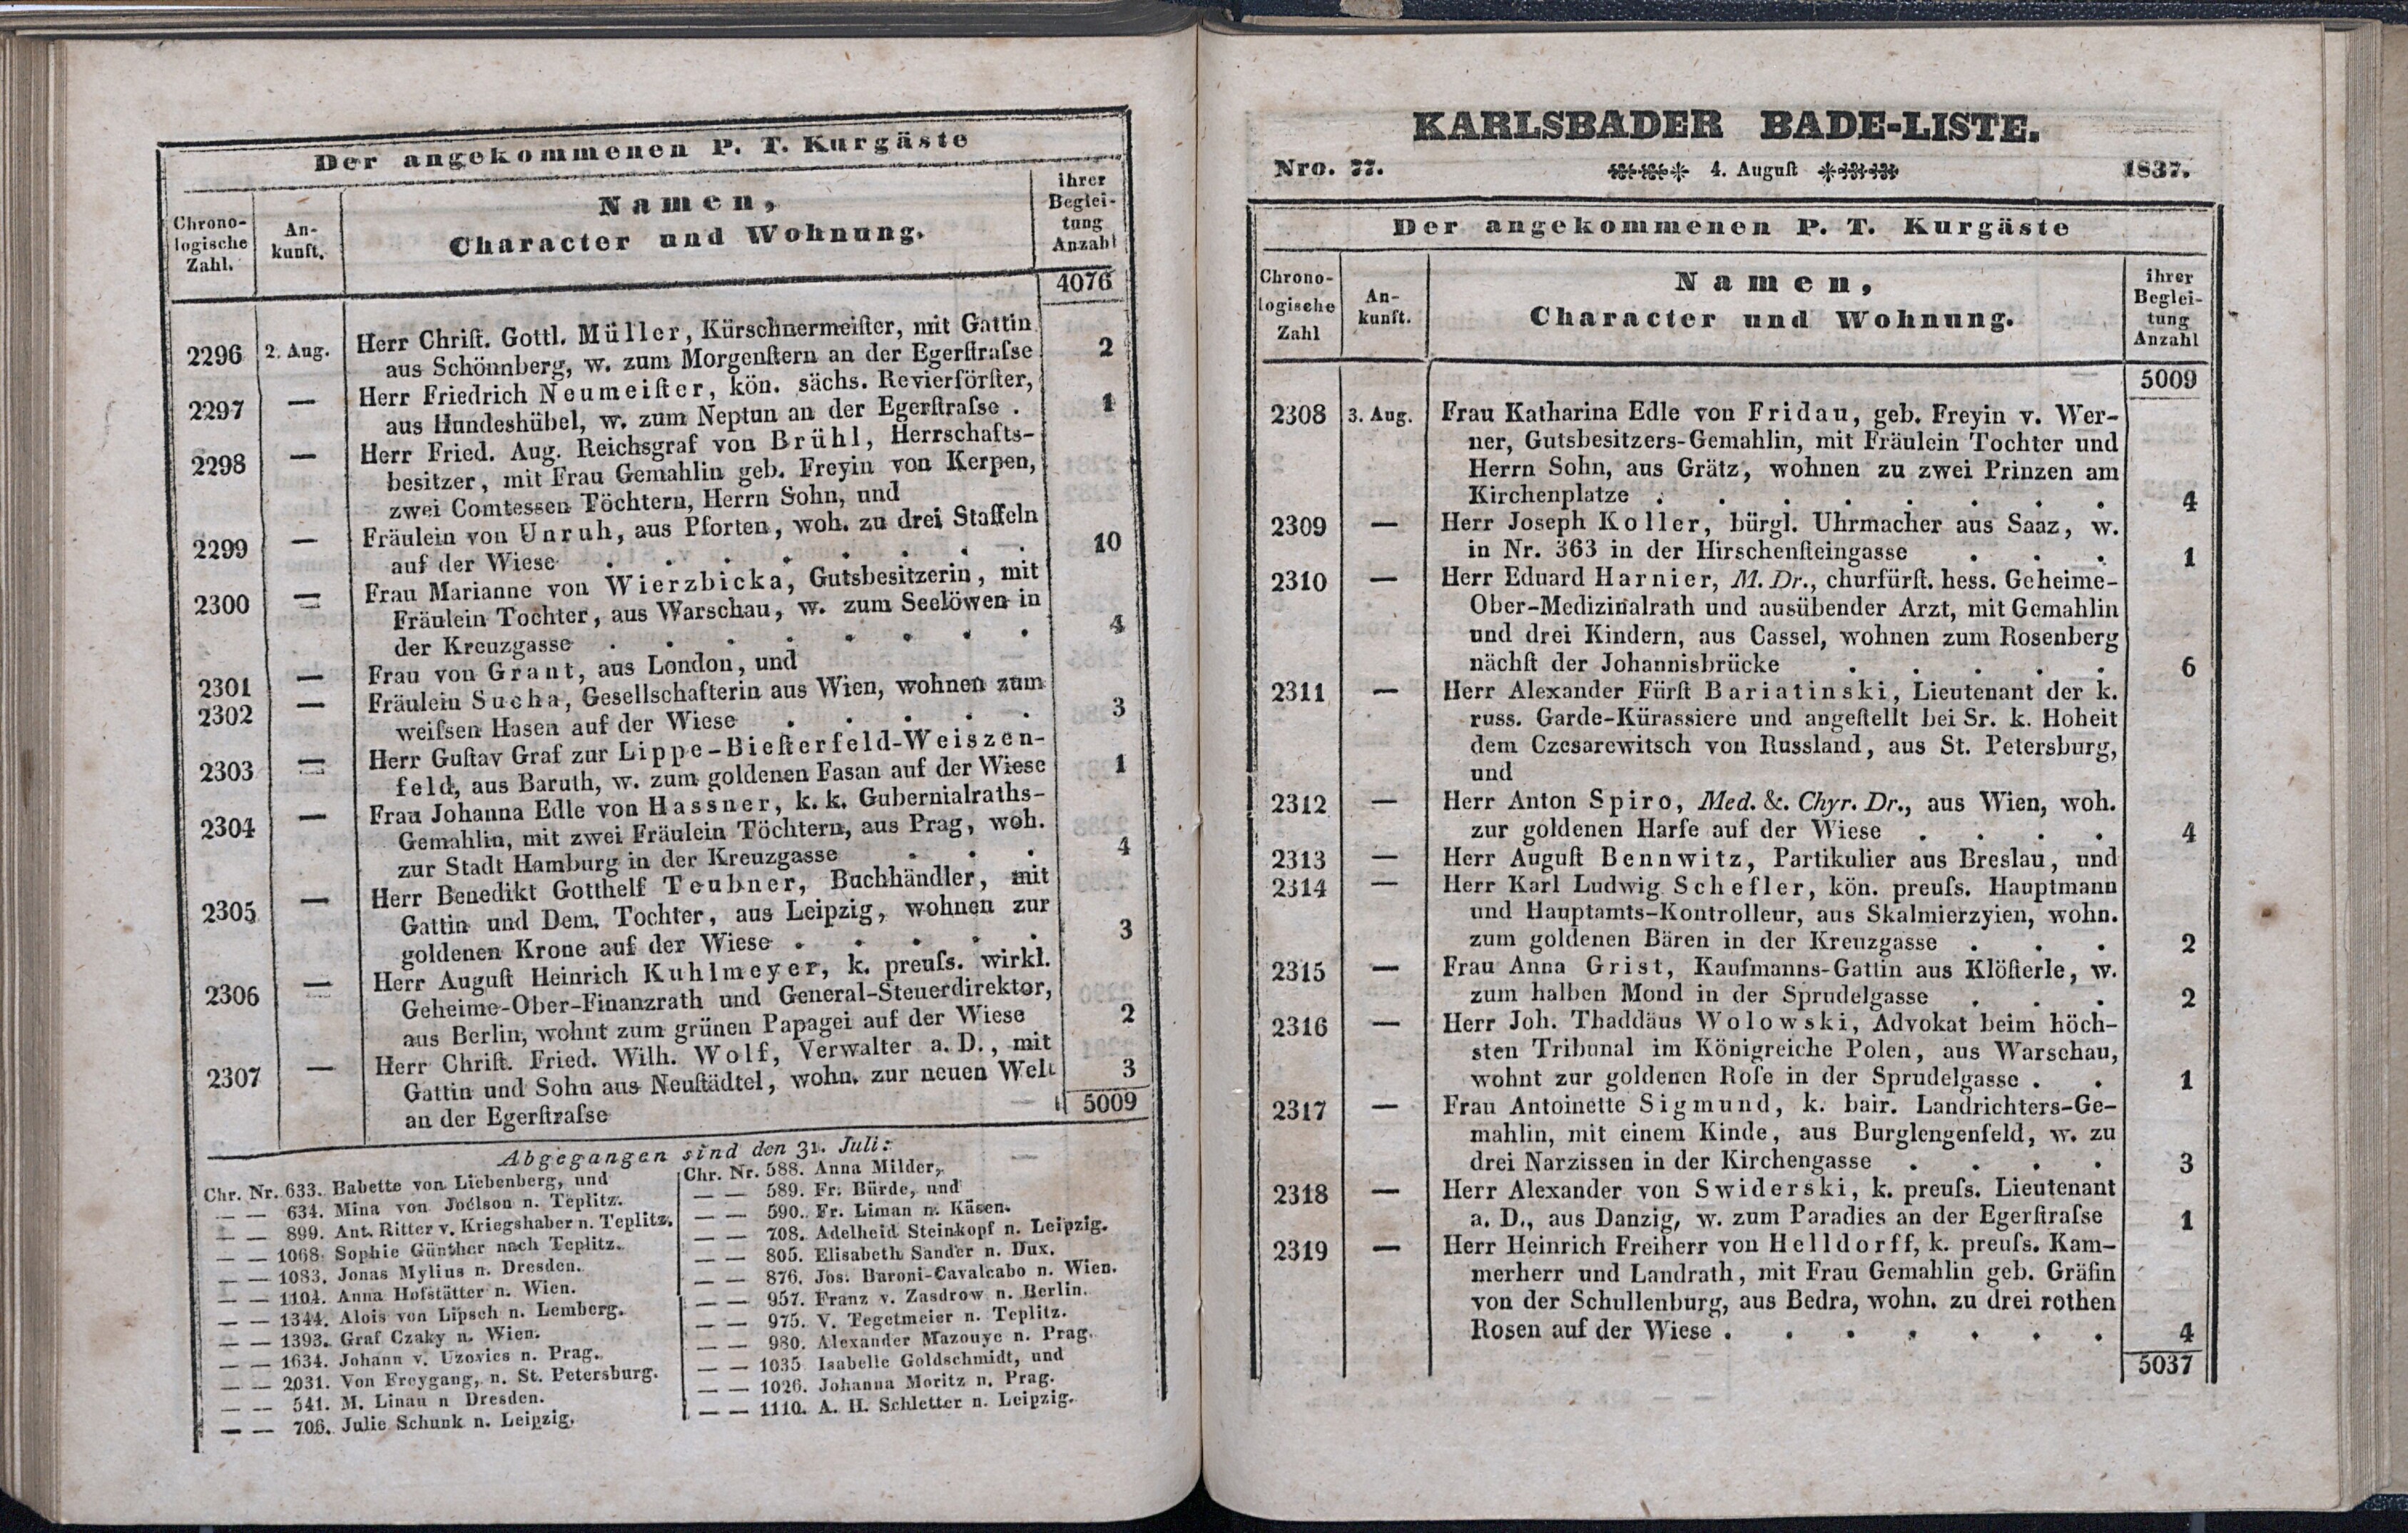 Der angekommenen P. T. Kurgäste
Chrono-
logische
Zahl.
An-
kunft.
Namen,
Character und Wohnung.
ihrer
Beglei-
tung
Anzahl
4076
2296 2. Aug. Herr Chriſt. Gottl. Müller, Kürschnermeiſter, mit Gattin
aus Schönnberg, w. zum Morgenſtern an der Egerſtraſse 2
2297 — Herr Friedrich Neumeiſter, kön. sächs. Revierförſter,
aus Hundeshübel, w. zum Neptun an der Egerſtraſse . 1
2298 — Herr Fried. Aug. Reichsgraf von Brühl, Herrschafts-
besitzer, mit Frau Gemahlin geb. Freyin von Kerpen,
zwei Comtessen Töchtern, Herrn Sohn, und
2299 — Fräulein von Unruh, aus Pforten, woh. zu drei Staffeln
auf der Wiese . . . . . . . 10
2300 — Frau Marianne von Wierzbicka, Gutsbesitzerin, mit
Fräulein Tochter, aus Warschau, w. zum Seelöwen in
der Kreuzgasse . . . . . . . . 4
2301 — Frau von Grant, aus London, und
2302 — Fräulein Sucha, Gesellschafterin aus Wien, wohnen zum
weiſsen Hasen auf der Wiese . . . . . 3
2303 — Herr Guſtav Graf zur Lippe-Bieſterfeld-Weiszen-
feld, aus Baruth, w. zum goldenen Fasan auf der Wiese 1
2304 — Frau Johanna Edle von Hassner, k. k. Gubernialraths-
Gemahlin, mit zwei Fräulein Töchtern, aus Prag, woh.
zur Stadt Hamburg in der Kreuzgasse . . . 4
2305 — Herr Benedikt Gotthelf Teubner, Buchhändler, mit
Gattin und Dem. Tochter, aus Leipzig, wohnen zur
goldenen Krone auf der Wiese . . . . . 3
2306 — Herr Auguſt Heinrich Kuhlmeyer, k. preuſs. wirkl.
Geheime-Ober-Finanzrath und General-Steuerdirektor,
aus Berlin, wohnt zum grünen Papagei auf der Wiese 2
2307 — Herr Chriſt. Fried. Wilh. Wolf, Verwalter a. D., mit
Gattin und Sohn aus Neuſtädtel, wohn. zur neuen Welt 3
an der Egerſtraſse
5009
Abgegangen sind den 31. Juli:
Chr. Nr. 633. Babette von Liebenberg, und
— — 634. Mina von Joëlson n. Teplitz.
— — 899. Ant. Ritter v. Kriegshaber n. Teplitz.
— — 1068. Sophie Günther nach Teplitz.
— — 1083. Jonas Mylius n. Dresden.
— — 1104. Anna Hofstätter n. Wien.
— — 1344. Alois von Lipsch n. Lemberg.
— — 1393. Graf Czaky n. Wien.
— — 1634. Johann v. Uzovics n. Prag.
— — 2031. Von Freygang, n. St. Petersburg.
— — 541. M. Linau n Dresden.
— — 706. Julie Schunk n. Leipzig.
Chr. Nr. 588. Anna Milder,
— — 589. Fr. Bürde, und
— — 590. Fr. Liman n. Käsen.
— — 708. Adelheid Steinkopf n. Leipzig.
— — 805. Elisabeth Sander n. Dux.
— — 876. Jos. Baroni-Cavalcabo n. Wien.
— — 957. Franz v. Zasdrow n. Berlin.
— — 975. V. Tegetmeier n. Teplitz.
— — 980. Alexander Mazouye n. Prag.
— — 1035 Isabelle Goldschmidt, und
— — 1026. Johanna Moritz n. Prag.
— — 1110. A. H. Schletter n. Leipzig.
KARLSBADER BADE-LISTE.
Nro. 77. 4. Auguſt 1837.
Der angekommenen P. T. Kurgäste
Chrono-
logische
Zahl
An-
kunft.
Namen,
Character und Wohnung.
ihrer
Beglei-
tung
Anzahl
5009
2308 3. Aug. Frau Katharina Edle von Fridau, geb. Freyin v. Wer-
ner, Gutsbesitzers-Gemahlin, mit Fräulein Tochter und
Herrn Sohn, aus Grätz, wohnen zu zwei Prinzen am
Kirchenplatze . . . . . . . . 4
2309 — Herr Joseph Koller, bürgl. Uhrmacher aus Saaz, w.
in Nr. 363 in der Hirschenſteingasse . . . 1
2310 — Herr Eduard Harnier, M. Dr., churfürſt. hess. Geheime-
Ober-Medizinalrath und ausübender Arzt, mit Gemahlin
und drei Kindern, aus Cassel, wohnen zum Rosenberg
nächſt der Johannisbrücke . . . . . 6
2311 — Herr Alexander Fürſt Bariatinski, Lieutenant der k.
russ. Garde-Kürassiere und angeſtellt bei Sr. k. Hoheit
dem Czesarewitsch von Russland, aus St. Petersburg,
und
2312 — Herr Anton Spiro, Med. &. Chyr. Dr., aus Wien, woh.
zur goldenen Harfe auf der Wiese . . . . 4
2313 — Herr Auguſt Bennwitz, Partikulier aus Breslau, und
2314 — Herr Karl Ludwig Schefler, kön. preuſs. Hauptmann
und Hauptamts-Kontrolleur, aus Skalmierzyien, wohn.
zum goldenen Bären in der Kreuzgasse . . . 2
2315 — Frau Anna Grist, Kaufmanns-Gattin aus Klöſterle, w.
zum halben Mond in der Sprudelgasse . . . 2
2316 — Herr Joh. Thaddäus Wolowski, Advokat beim höch-
sten Tribunal im Königreiche Polen, aus Warschau,
wohnt zur goldenen Roſe in der Sprudelgasse . . 1
2317 — Frau Antoinette Sigmund, k. bair. Landrichters-Ge-
mahlin, mit einem Kinde, aus Burglengenfeld, w. zu
drei Narzissen in der Kirchengasse . . . . 3
2318 — Herr Alexander von Swiderski, k. preuſs. Lieutenant
a. D., aus Danzig, w. zum Paradies an der Egerſtraſse 1
2319 — Herr Heinrich Freiherr von Helldorff, k. preuſs. Kam-
merherr und Landrath, mit Frau Gemahlin geb. Gräfin
von der Schullenburg, aus Bedra, wohn. zu drei rothen
Rosen auf der Wiese . . . . . . . 4
5037